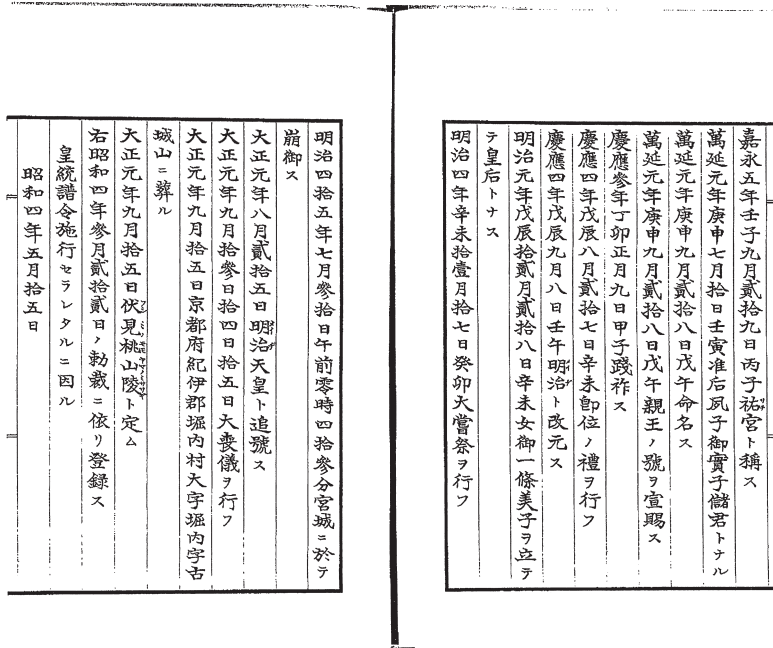 嘉永五年壬子九月貳拾九日丙子祐宮ト稱ス
萬延元年庚申七月拾日壬寅准后夙子御實子儲君トナル
萬延元年庚申九月貳拾八日戊午命名ス
萬延元年庚申九月貳拾八日戊午親王ノ號ヲ宣賜ス
慶應參年丁卯正月九日甲子踐祚ス
慶應四年戊辰八月貳拾七日辛未卽位ノ禮ヲ行フ
慶應四年戊辰九月八日壬午明治ト改元ス
明治元年戊辰拾貳月貳拾八日辛未女御一條美子ヲ立テ
テ皇后トナス
明治四年辛未拾壹月拾七日癸卯大嘗祭ヲ行フ
明治四拾五年七月參拾日午前零時四拾參分宮城ニ於テ
崩御ス
大正元年八月貳拾五日明治天皇ト追號ス
大正元年九月拾參日拾四日拾五日大喪儀ヲ行フ
大正元年九月拾五日京都府紀伊郡堀內村大字堀內字古
城山ニ葬ル
大正元年九月拾五日伏見桃山陵ト定ム
右昭和四年參月貳拾貳日ノ勅裁ニ依リ登錄ス
皇統譜令施行セラレタルニ因ル
昭和四年五月拾五日